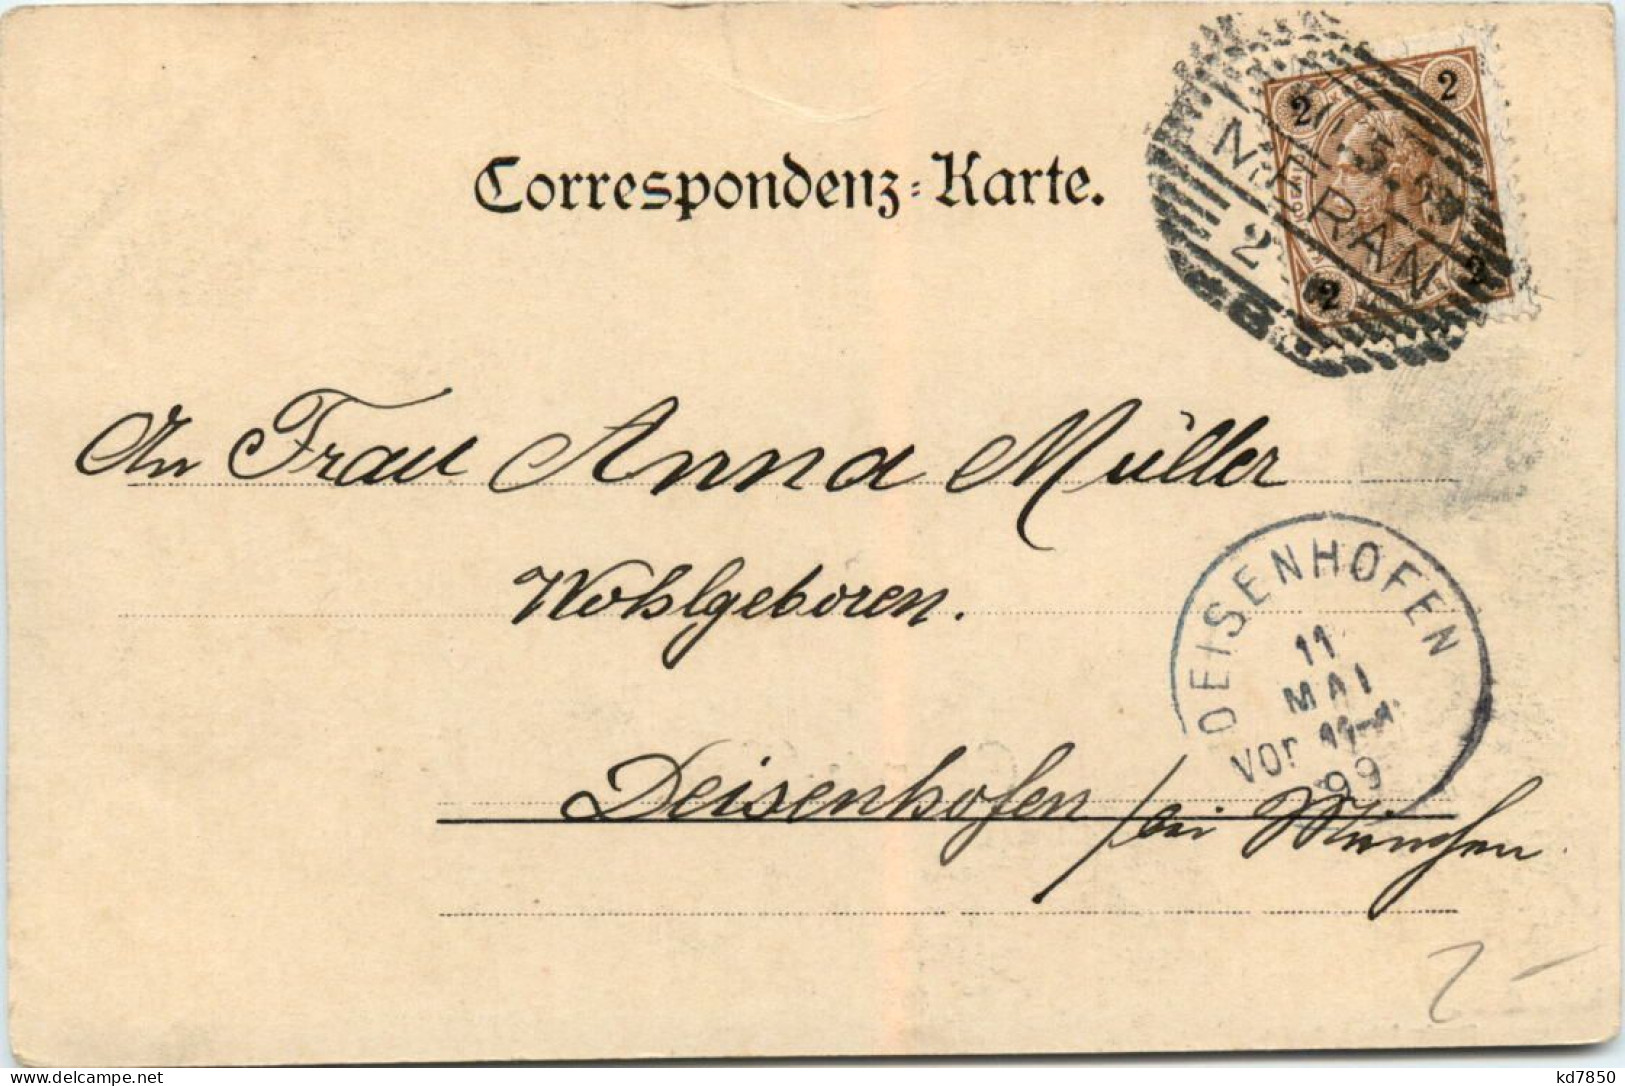 Correspondenz-Karte.
2 2
MERAN
2
2 2
An Frau Anna Müller
Wohlgeboren.
DEISENHOFEN
11
MAI
Vor
99
Deisenhofen / bei München
2-
www.delcampe.net
kd7850